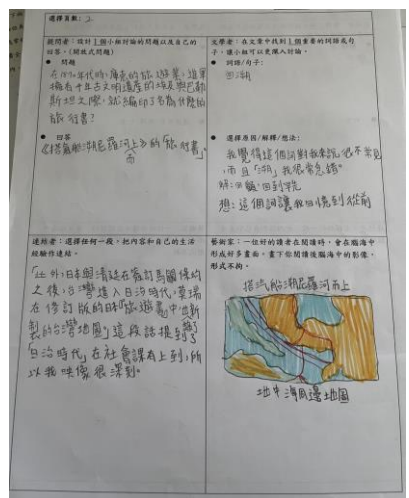 選擇頁數：2
提問者：設計1個小組討論的問題以及自己的
回答。(開放式問題)
● 問題
在1840年代時，庫克的旅遊業，進軍
擁有千年古文明遺產的埃及與巴勒
斯坦之際，就編印了名為什麼的
旅行書？
● 回答
《搭汽船溯尼羅河而上》的「旅行書」。
文學者：在文章中找到1個重要的詞語或句
子，讓小組可以更深入討論。
● 詞語/句子：
回溯
● 選擇原因/解釋/想法：
我覺得這個詞對我來說很不常見
，而且「溯」我很常念錯。
解：回
想：這個詞讓我回憶到從前
連結者：選擇任何一段，把內容和自己的生活
經驗作連結。
「此外，日本與清廷在簽訂馬關條約
之後，台灣進入日治時代，莫瑞
在修訂版的日本「旅遊書」中，也新
製的台灣地圖」這段話提到了
「日治時代」在社會課有上到，所
以我映像很深刻。
藝術家：一位好的讀者在閱讀時，會在腦海中
形成好多畫面。畫下你閱讀後腦海中的影像，
形式不拘。
搭汽船溯尼羅河而上
地中海周邊地圖